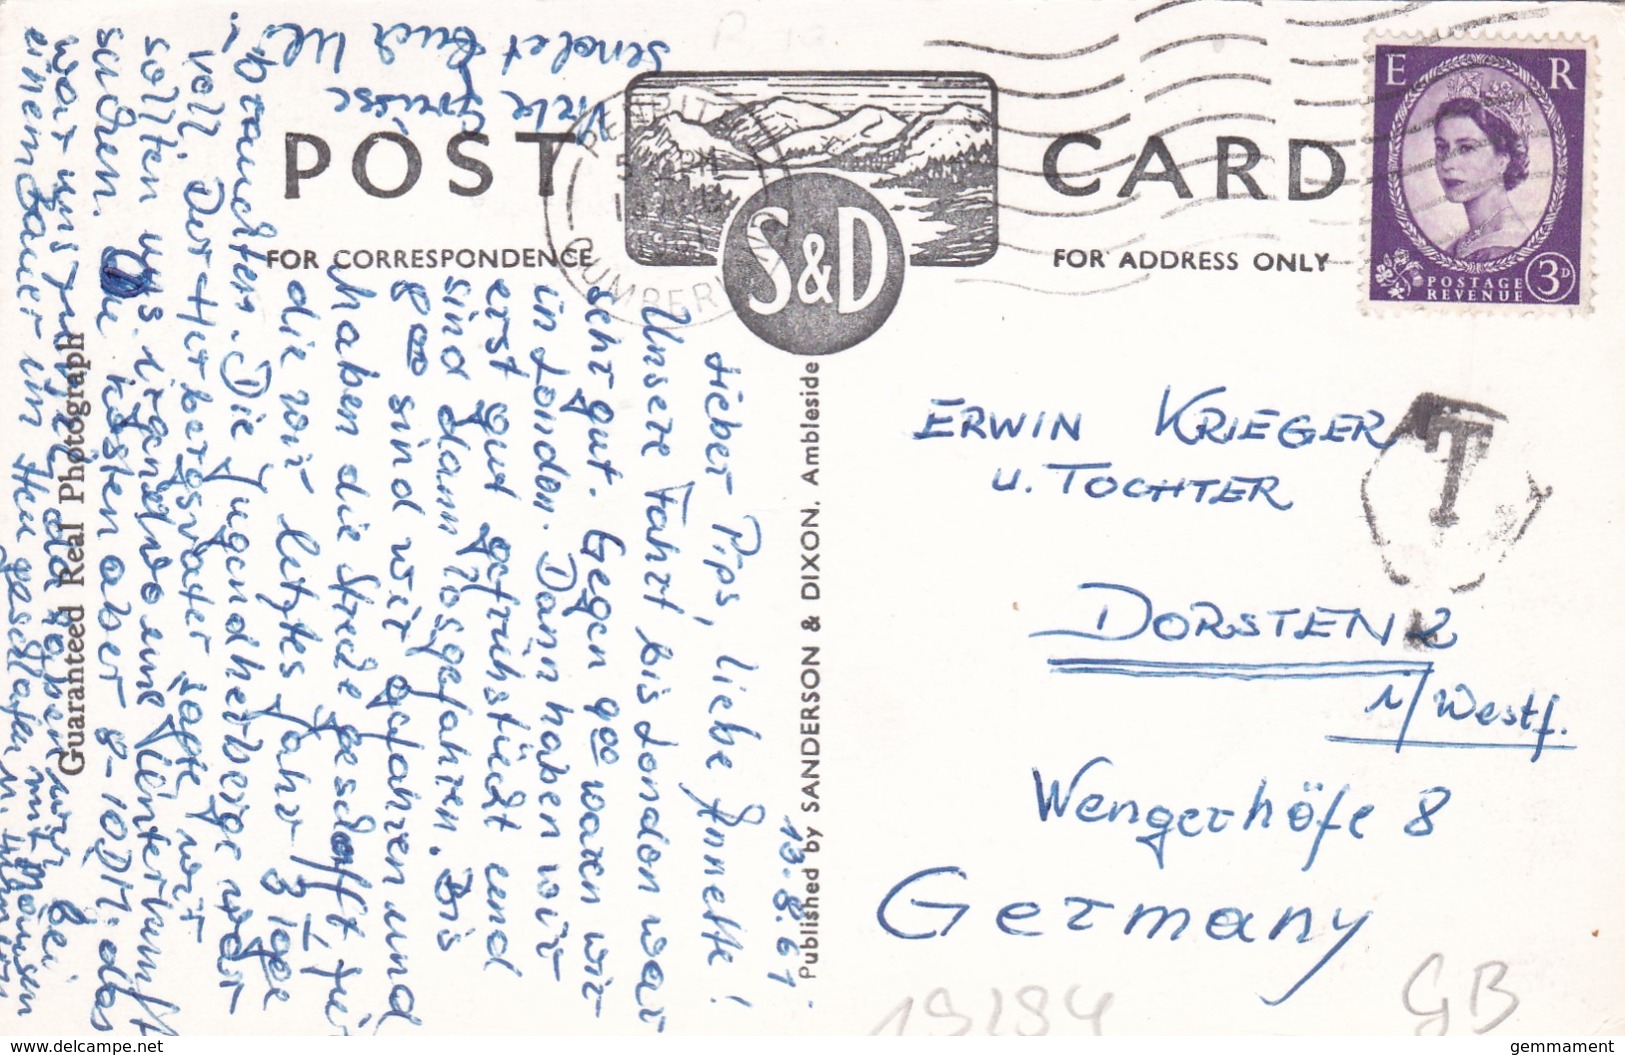 POST CARD
FOR CORRESPONDENCE
FOR ADDRESS ONLY
S&D
E R
POSTAGE
REVENUE
3D
PENRITH
CUMBERLAND
T
Published by SANDERSON & DIXON, Ambleside
Guaranteed Real Photograph
13.8.61
Lieber Pips, liebe Annette!
Unsere Fahrt bis London war
sehr gut. Gegen 9 00 waren wir
in London. Dann haben wir
erst gut gefrühstückt und
sind dann losgefahren. Bis
8 00 sind wir gefahren und
haben die Strecke geschafft, für
die wir letztes Jahr 3 Tage
brauchten. Die Jugendherberge war
voll. Der Herbergsvater sagte, wir
sollten uns irgendwo eine Unterkunft
suchen. Die kosten aber 8-10 DM. das
war uns zu
einem Bauer im Heu geschlafen
mit Mäusen
Viele Grüsse
sendet Euch Uli
ERWIN KRIEGER
u. TOCHTER
DORSTEN 2
i/Westf.
Wengerhöfe 8
Germany
19/94
GB
www.delcampe.net
gemmament